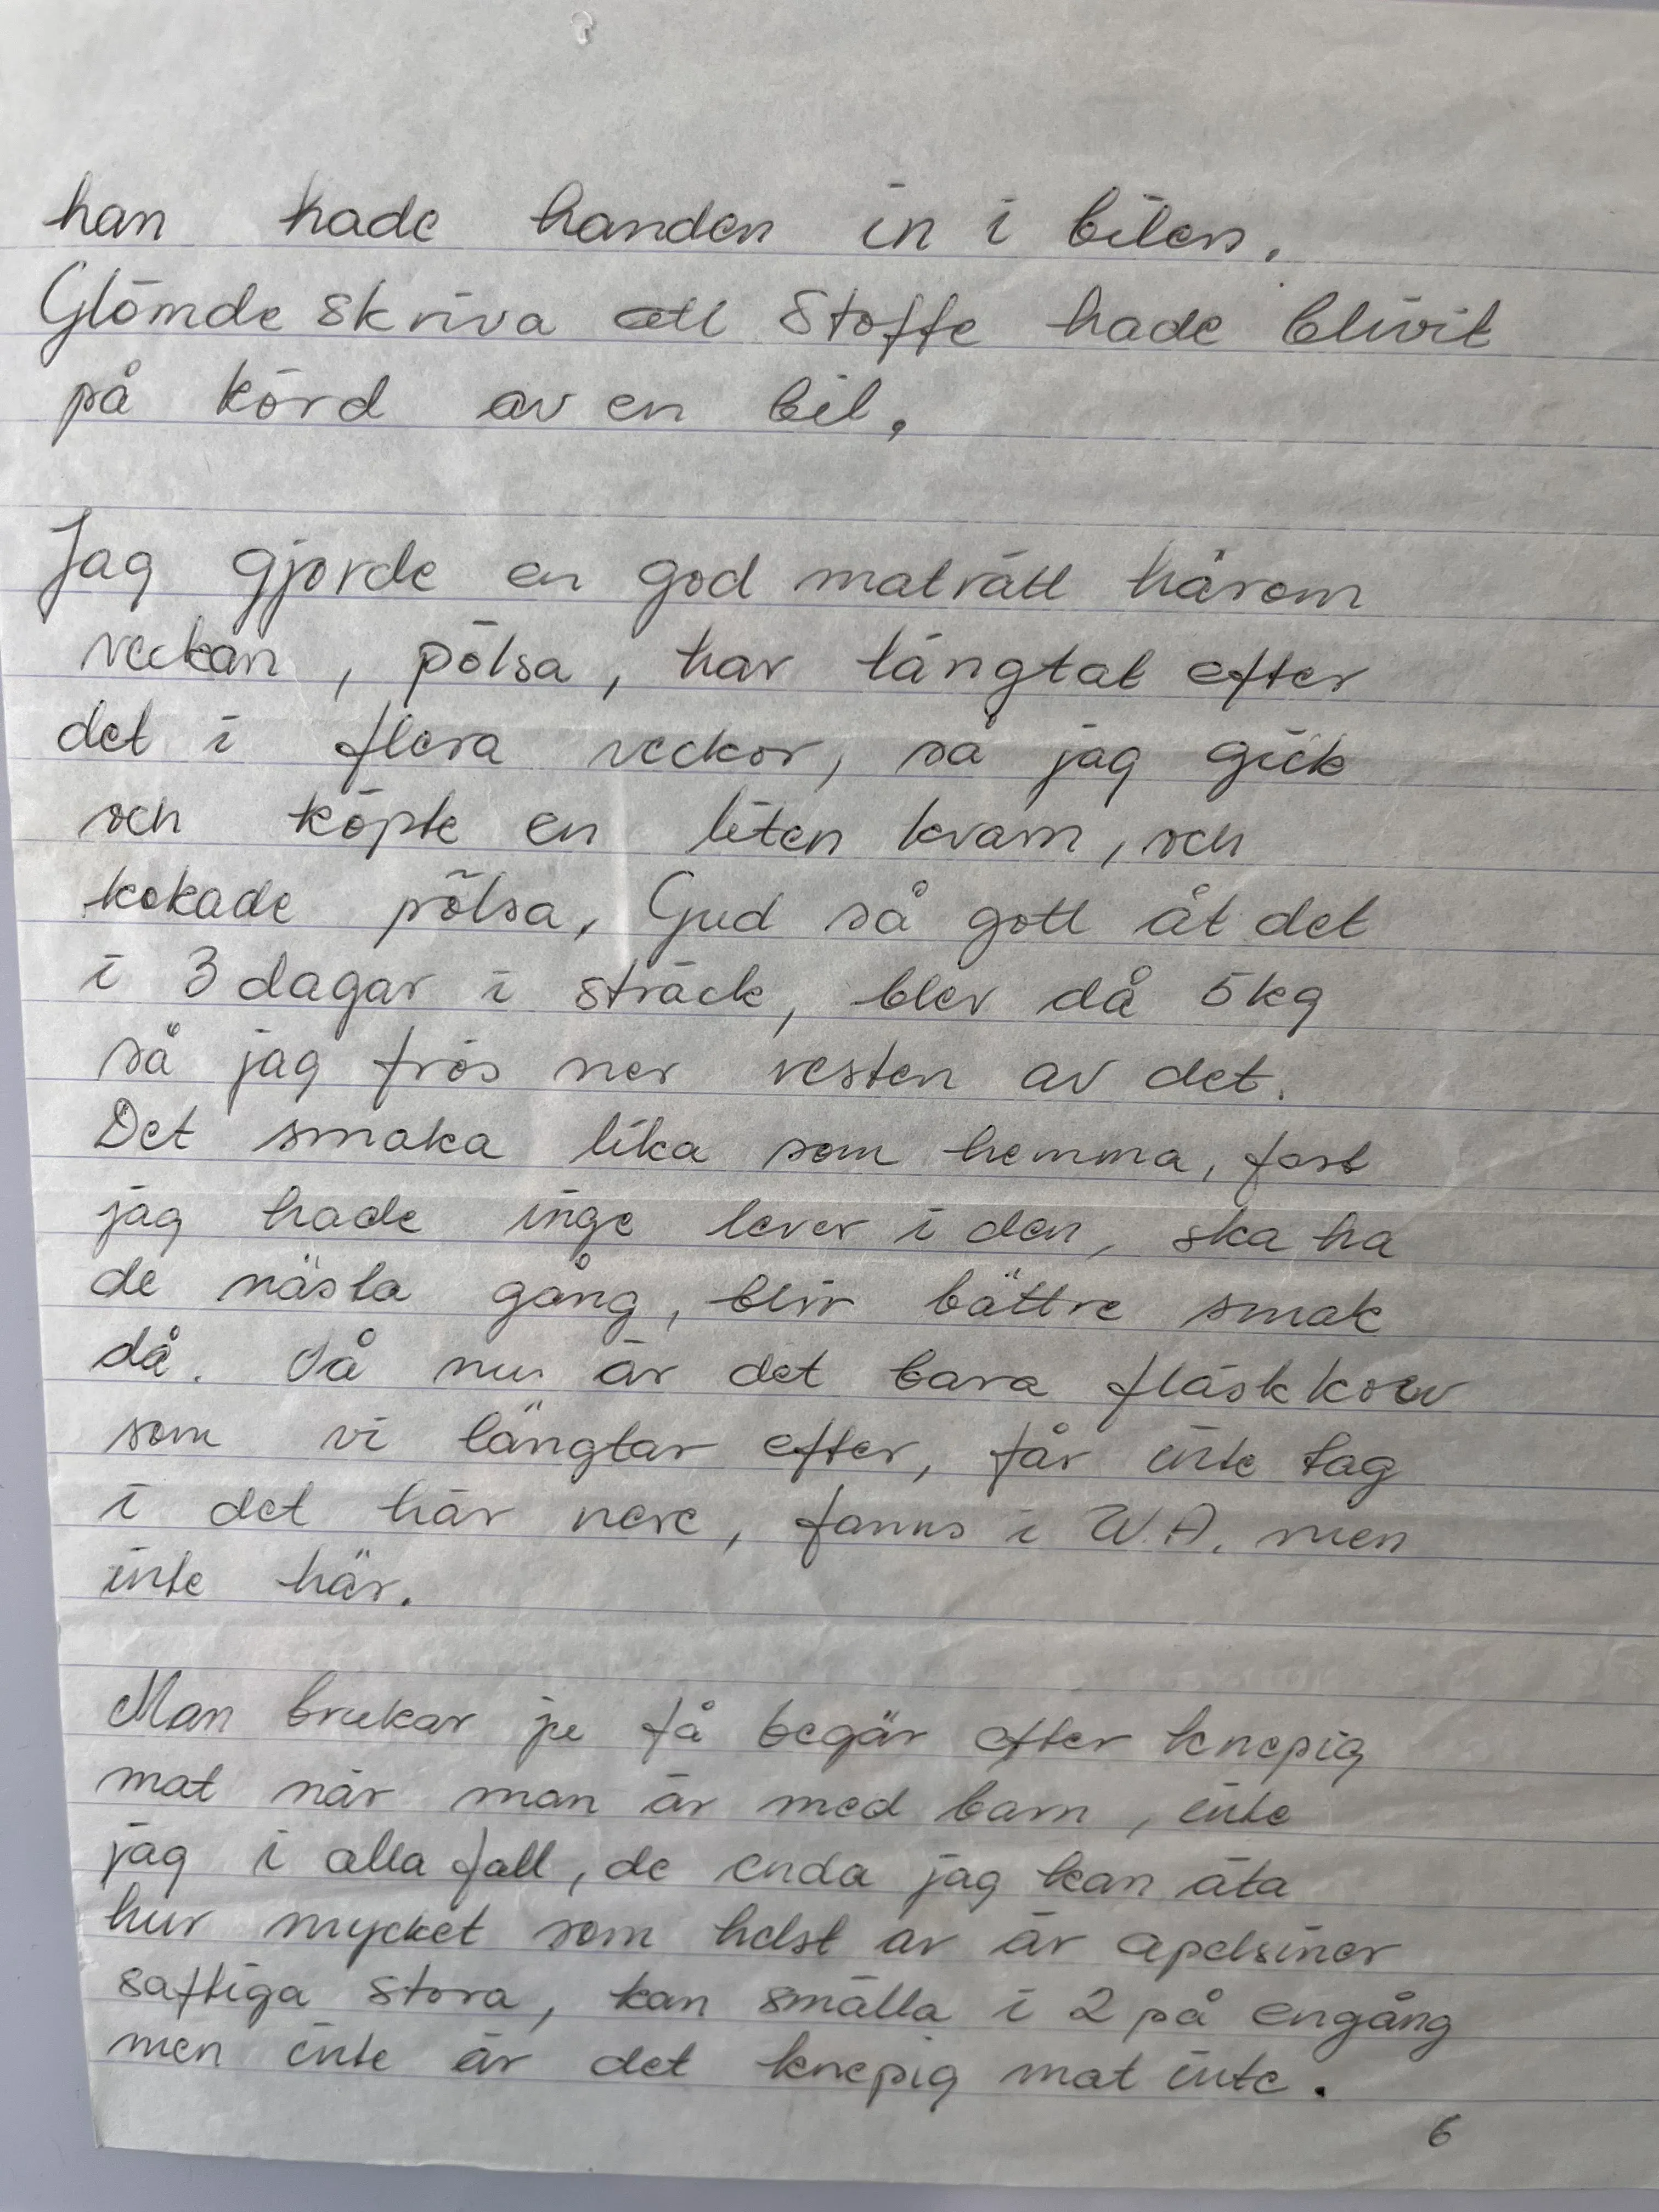 han hade handen in i bilen.
Glömde skriva att Stoffe hade blivit
på körd av en bil.
Jag gjorde en god maträtt härom
veckan, pölsa, har längtat efter
det i flera veckor, så jag gick
och köpte en liten kvarn, och
kokade pölsa, Gud så gott åt det
i 3 dagar i sträck, blev då 5kg
så jag frös ner resten av det.
Det smaka lika som hemma, fast
jag hade inge lever i den, ska ha
de nästa gång, blir bättre smak
då. Så nu är det bara fläskkorv
som vi längtar efter, får inte tag
i det här nere, fanns i W.A. men
inte här.
Man brukar ju få begär efter knepig
mat när man är med barn, inte
jag i alla fall, de enda jag kan äta
hur mycket som helst av är apelsiner
saftiga stora, kan smälla i 2 på engång
men inte är det knepig mat inte.
6